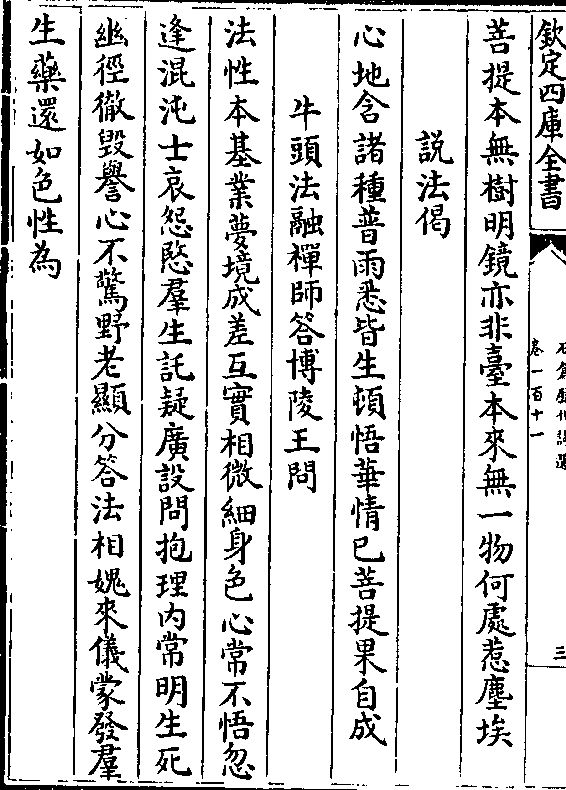 欽定四庫全書
石倉歷代詩選
卷一百十一
三
菩提本無樹明鏡亦非臺本來無一物何處惹塵埃
説法偈
心地含諸種普雨悉皆生頓悟華情已菩提果自成
牛頭法融禪師答博陵王問
法性本基業夢境成差互實相微細身色心常不悟忽
逢混沌士哀怨愍羣生託疑廣設問抱理内常明生死
幽徑徹毁譽心不驚野老顯分答法相媿來儀蒙發羣
生藥還如色性為